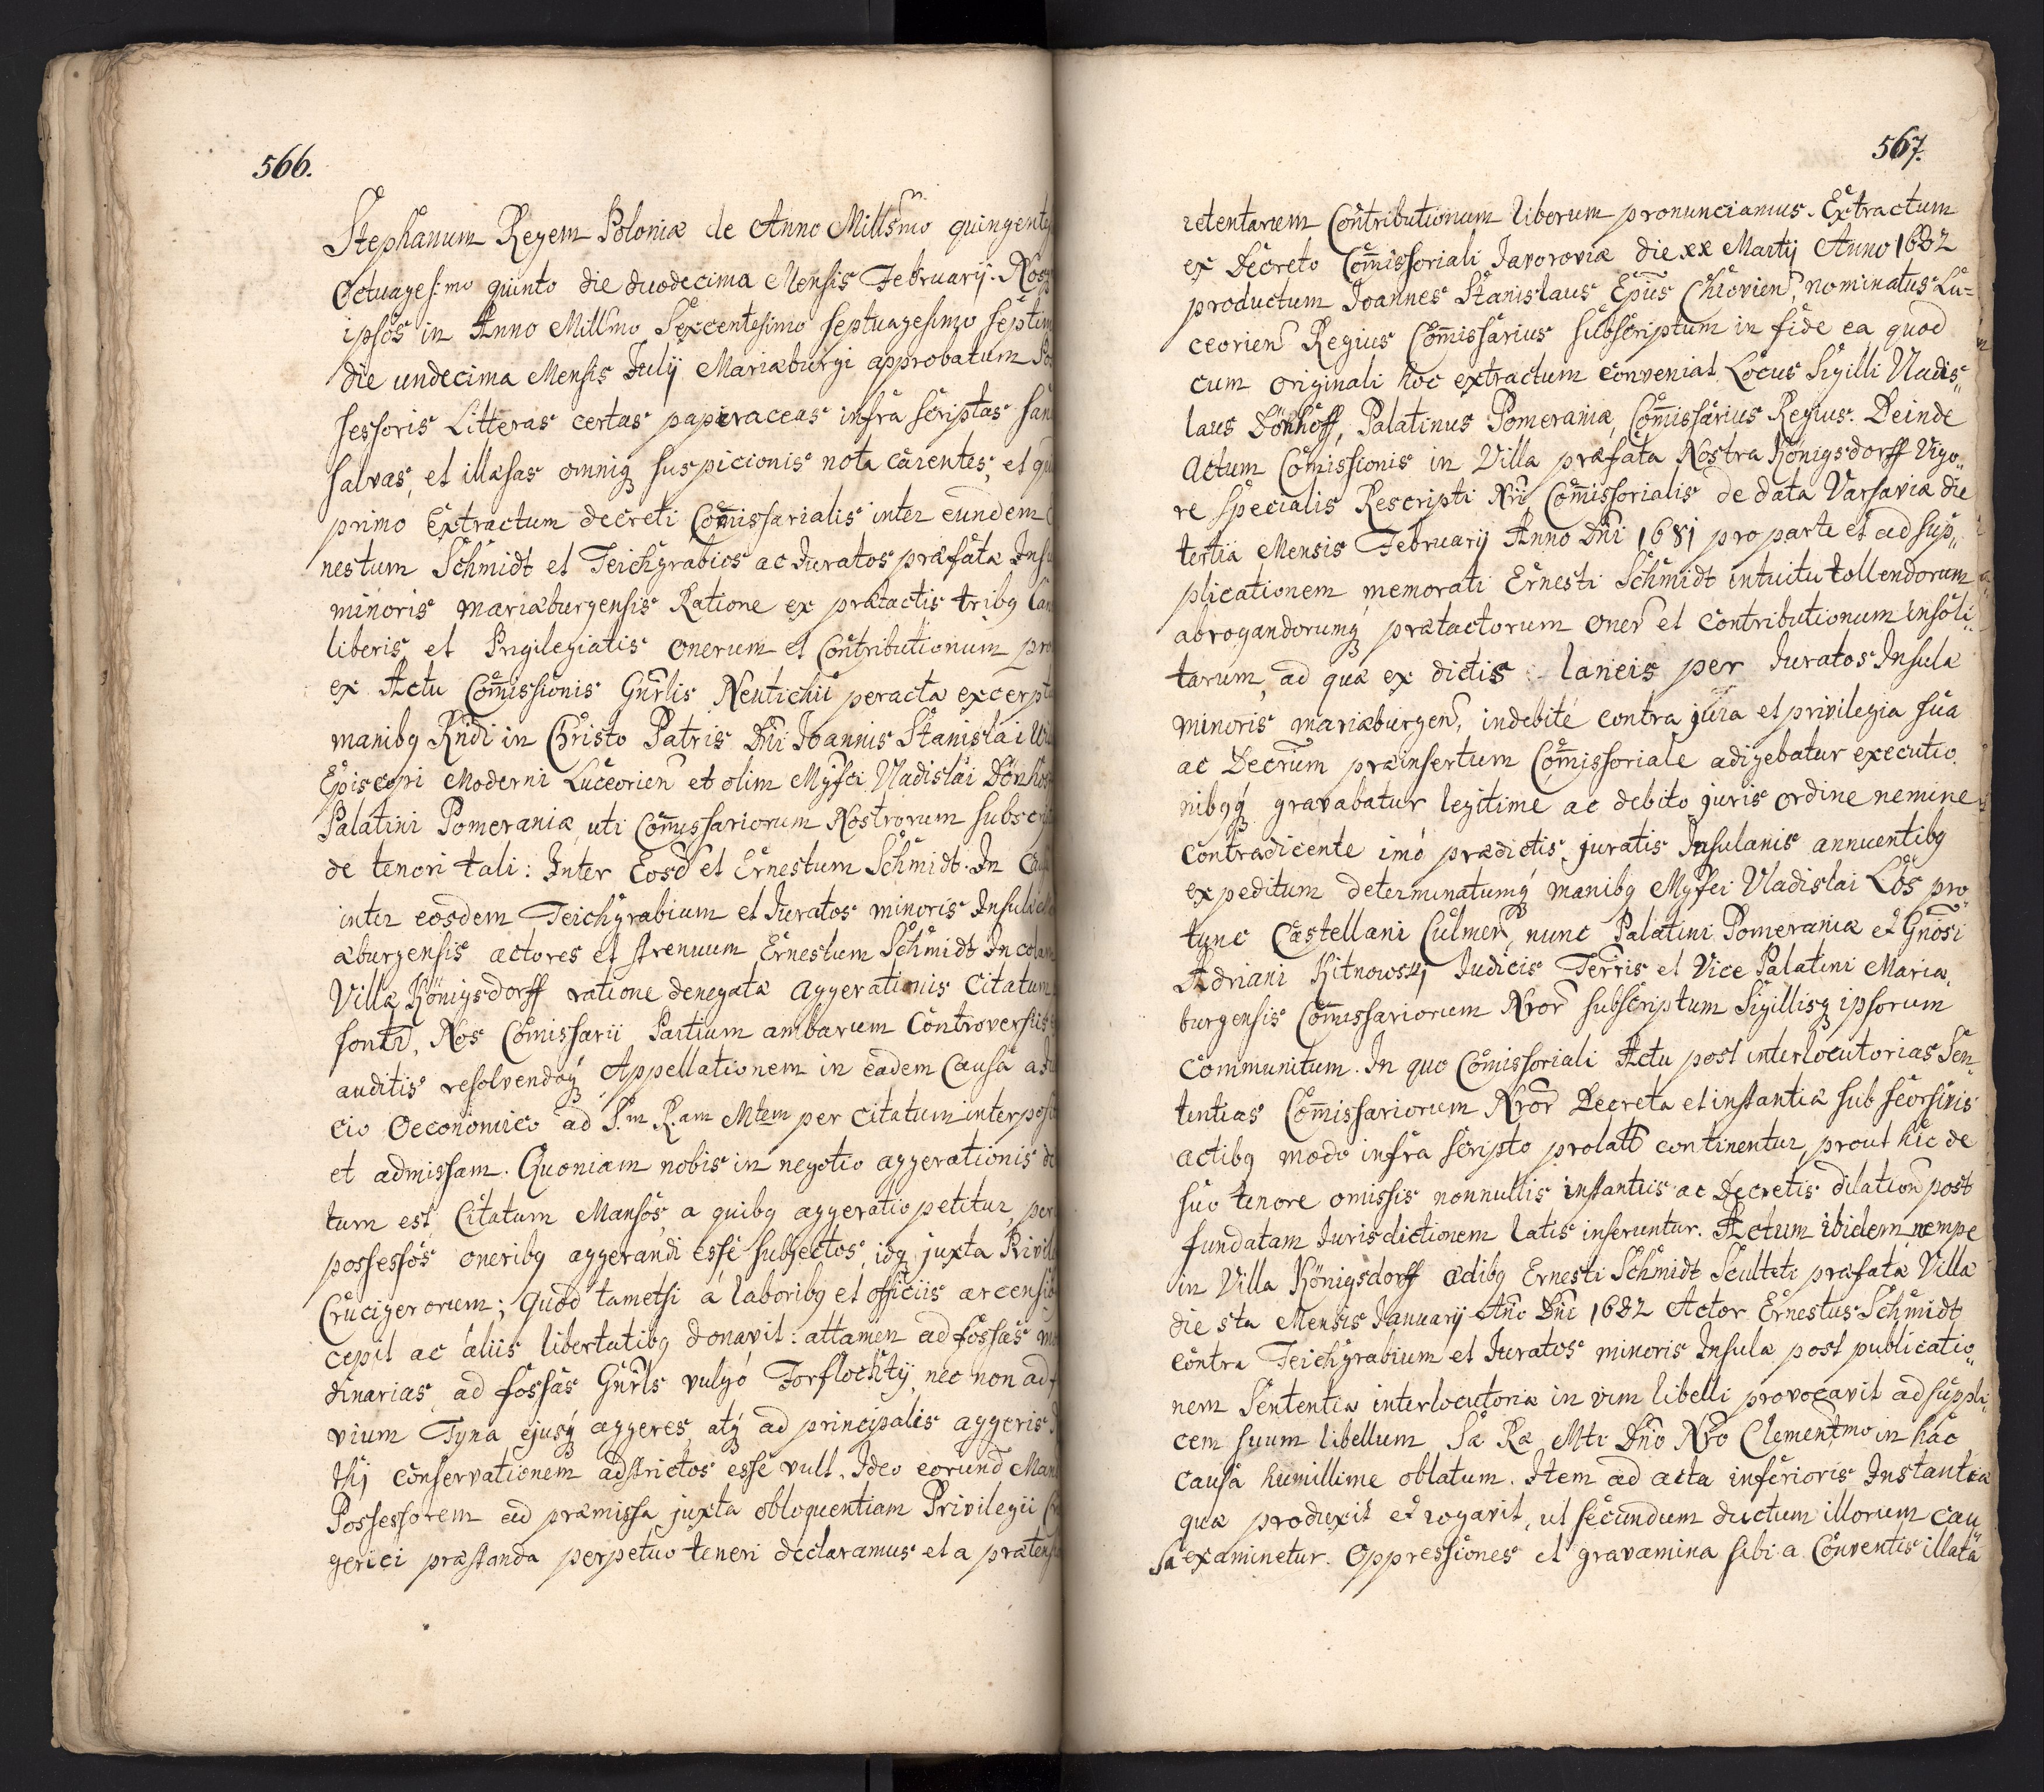 566.
Stephanum Regem Poloniæ de Anno Millsmo quingente
Octuages:mo quinto die duodecima Mensis Februarij. Nos
ipsos in Anno Millmo Sexcentesimo septuagesimo septim
die undecima Mensis Julij Mariæburgi approbatum Pos
sessoris Litteras certas papiraceas infra scriptas san
salvas, et illæsas omniq suspicionis nota carentes, et qui
primo Extractum decreti Com̄issarialis inter eundem
nestum Schmidt et Teichgrabios ac Juratos præfatæ Insu
minoris mariæburgensis Ratione ex prætactis tribq lan
liberis et Privilegiatis onerum et Contributionum pro
ex Actu Com̄issionis Gnrlis Neutichii peracta excerpt
manibq Rndi in Christo Patris Dni Joannis Stanislai
Episcopi Moderni Luceorien et olim Mgfci Vladislai Dönhof
Palatini Pomeraniæ, uti Com̄issariorum Nostrorum subscri
de tenori tali: Inter Eosd et Ernestum Schmidt. In Cau
inter eosdem Teichgrabium et Juratos minoris Insulæ
æburgensis actores et strenuum Ernestum Schmidt Incolam
Villæ Königsdorff ratione denegatæ aggerationis Citatum
sontē, Nos Com̄issarii Partium ambarum Controversiis
auditis resolvendoq Appellationem in eadem Causa a Ju
cio Oeconomico ad S.m R.am Mtem per citatum interposit
et admissam. Quoniam nobis in negotio aggerationis de
tum est, Citatum Mansos, a quibq aggeratio petitur, per
possessos oneribq aggerandi esse subjectos, idq juxta Privile
Crucigerorum; Quod tametsi á laboribq et officiis arcensio
cepit ac aliis libertatibq donavit: attamen ad fossas
dinarias, ad fossas Gnrls vulgó Forflochtij, nec non ad
vium Tyna ejusq aggeres, atq ad principalis aggeris
thj conservationem adstrictos esse vult. Ideo eorund Man
Possessorem ad præmissa juxta obloquentiam Privilegii Cru
gerici præstanda perpetuo teneri declaramus et a prætens
567.
retentarum Contributionum liberum pronunciamus. Extractum
ex Decreto Com̄issoriali Javoroviæ die xx Martij Anno 1682
productum Joannes Stanislaus Epūs Chiovien, nominatus Lu=
ceorien Regius Com̄issarius subscriptum in fide ea quod
cum originali hoc extractum conveniat. Locus Sigilli Vladis„
laus Dönhoff, Palatinus Pomeraniæ, Com̄issarius Regius. Deinde
Actum Com̄issionis in Villa præfata Nostra Königsdorff Vigo„
re specialis Rescripti Nri Com̄issorialis de data Varsaviæ die
tertia Mensis Februarij Anno Dni 1681 pro parte et ad sup„
plicationem memorati Ernesti Schmidt intuitu tollendorum
abrogandorumq prætactorum oner et contributionum insoli„
tarum, ad quæ ex dictis laneis per Juratos Insulæ
minoris mariæburgen, indebité contra jura et privilegia sua
ac Decrūm præinsertum Com̄issoriale adigebatur executio
nibqq gravabatur legitime ac debito juris ordine nemine
contradicente imó prædictis juratis Insulanis annuentibq
expeditum determinatumq manibq Mgfci Vladislai Los pro
tunc Castellani Culmen, nunc Palatini Pomeraniæ et Gnosi
Adriani Kitnowskj Judicis Terris et Vice Palatini Mariæ„
burgensis Com̄issariorum Nror subscriptum Sigillisq ipsorum
communitum. In quo Com̄issoriali Actu post interlocutorias Sen„
tentias Com̄issariorum Nror Decreta et instantiæ sub seorsivis
actibq modo infra scripto prolatē continentur, prout hic de
suo tenore omissis nonnullis instantiis ac Decretis dilation post
fundatam Jurisdictionem latis inseruntur. Actum ibidem nempe
in Villa Königsdorff ædibq Ernesti Schmidt Sculteti præfatæ Villæ
die 5ta Mensis Januarij Año Dni 1682 Actor Ernestus Schmidt
contra Teichgrabium et Juratos minoris Insulæ post publicatio„
nem Sententiæ interlocutoriæ in vim libelli provocavit ad suppli„
cem suum libellum Sæ Ræ Mti Dno Nro Clementmo in hac
causa humillime oblatum. Item ad acta inferioris Instantiæ
quæ produxit et rogavit, ut secundum ductum illorum cau
sa examinetur. Oppressiones et gravamina sibi a Conventis illata